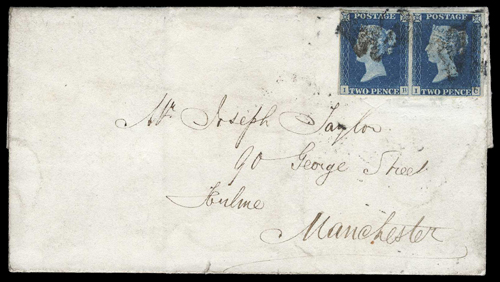 POSTAGE POSTAGE
TWO PENCE TWO PENCE
Mr. Joseph Taylor
90 George Street
Hulme
Manchester